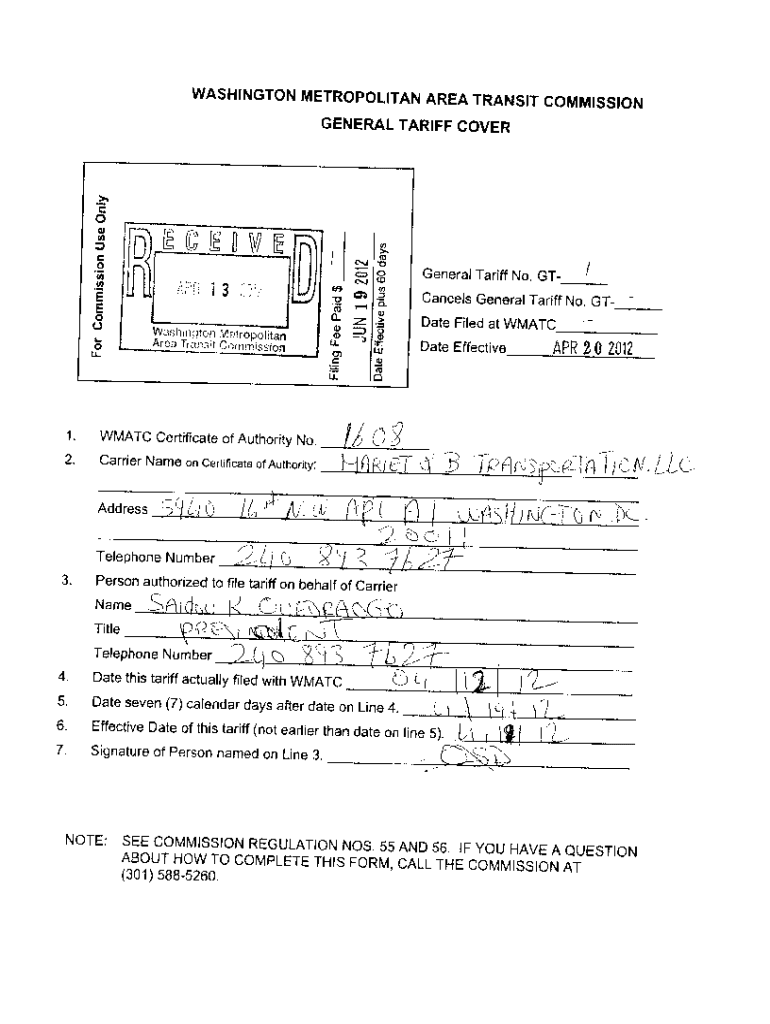 WASHINGTON METROPOLITAN AREA TRANSIT COMMISSION
GENERAL TARIFF COVER
For Commission Use Only
RECEIVED
APR 13
Washington Metropolitan
Area Transit Commission
Filing Fee Paid $ --
JUN 19 2012
Date Effective plus 60 days
General Tariff No. GT- 1
Cancels General Tariff No. GT- -
Date Filed at WMATC --
Date Effective APR 20 2012
1. WMATC Certificate of Authority No. 1608
2. Carrier Name on Certificate of Authority: MARIET & B TRANSPORTATION, LLC
Address 5940 16th N.W APT A1 WASHINGTON DC.
20011
Telephone Number 240 893 7627
3. Person authorized to file tariff on behalf of Carrier
Name K
Title PRESIDENT
Telephone Number 240 893 7627
4. Date this tariff actually filed with WMATC 04 12 12
5. Date seven (7) calendar days after date on Line 4. 4 19 12
6. Effective Date of this tariff (not earlier than date on line 5). 4 12
7. Signature of Person named on Line 3.
NOTE: SEE COMMISSION REGULATION NOS. 55 AND 56. IF YOU HAVE A QUESTION
ABOUT HOW TO COMPLETE THIS FORM, CALL THE COMMISSION AT
(301) 588-5260.